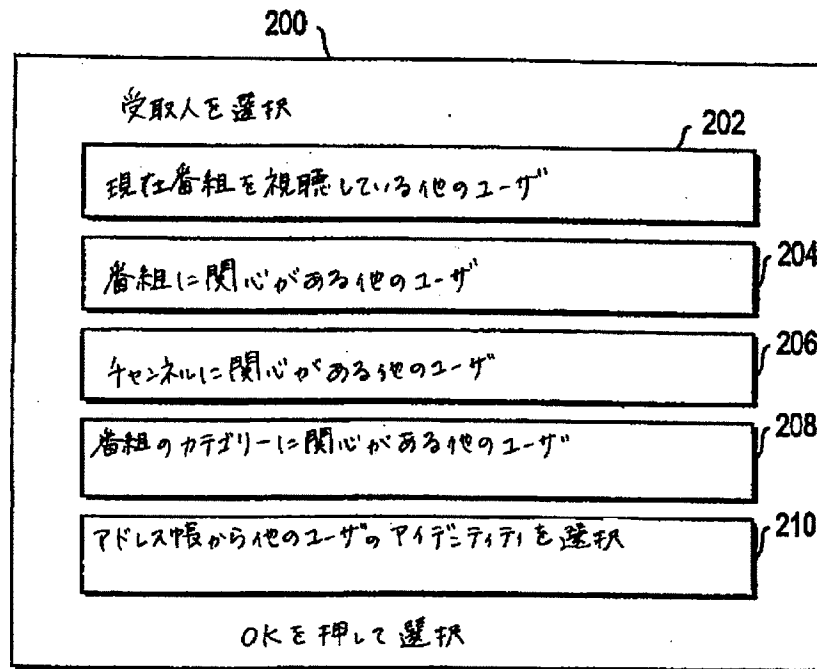 200
受取人を選択
202
現在番組を視聴している他のユーザ
204
番組に関心がある他のユーザ
206
チャンネルに関心がある他のユーザ
208
番組のカテゴリーに関心がある他のユーザ
210
アドレス帳から他のユーザのアイデンティティを選択
OKを押して選択